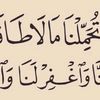 تُحَمِّلْنَا مَا لَا طَاقَ
نَّا وَٱغْفِرْ لَنَا وَٱ